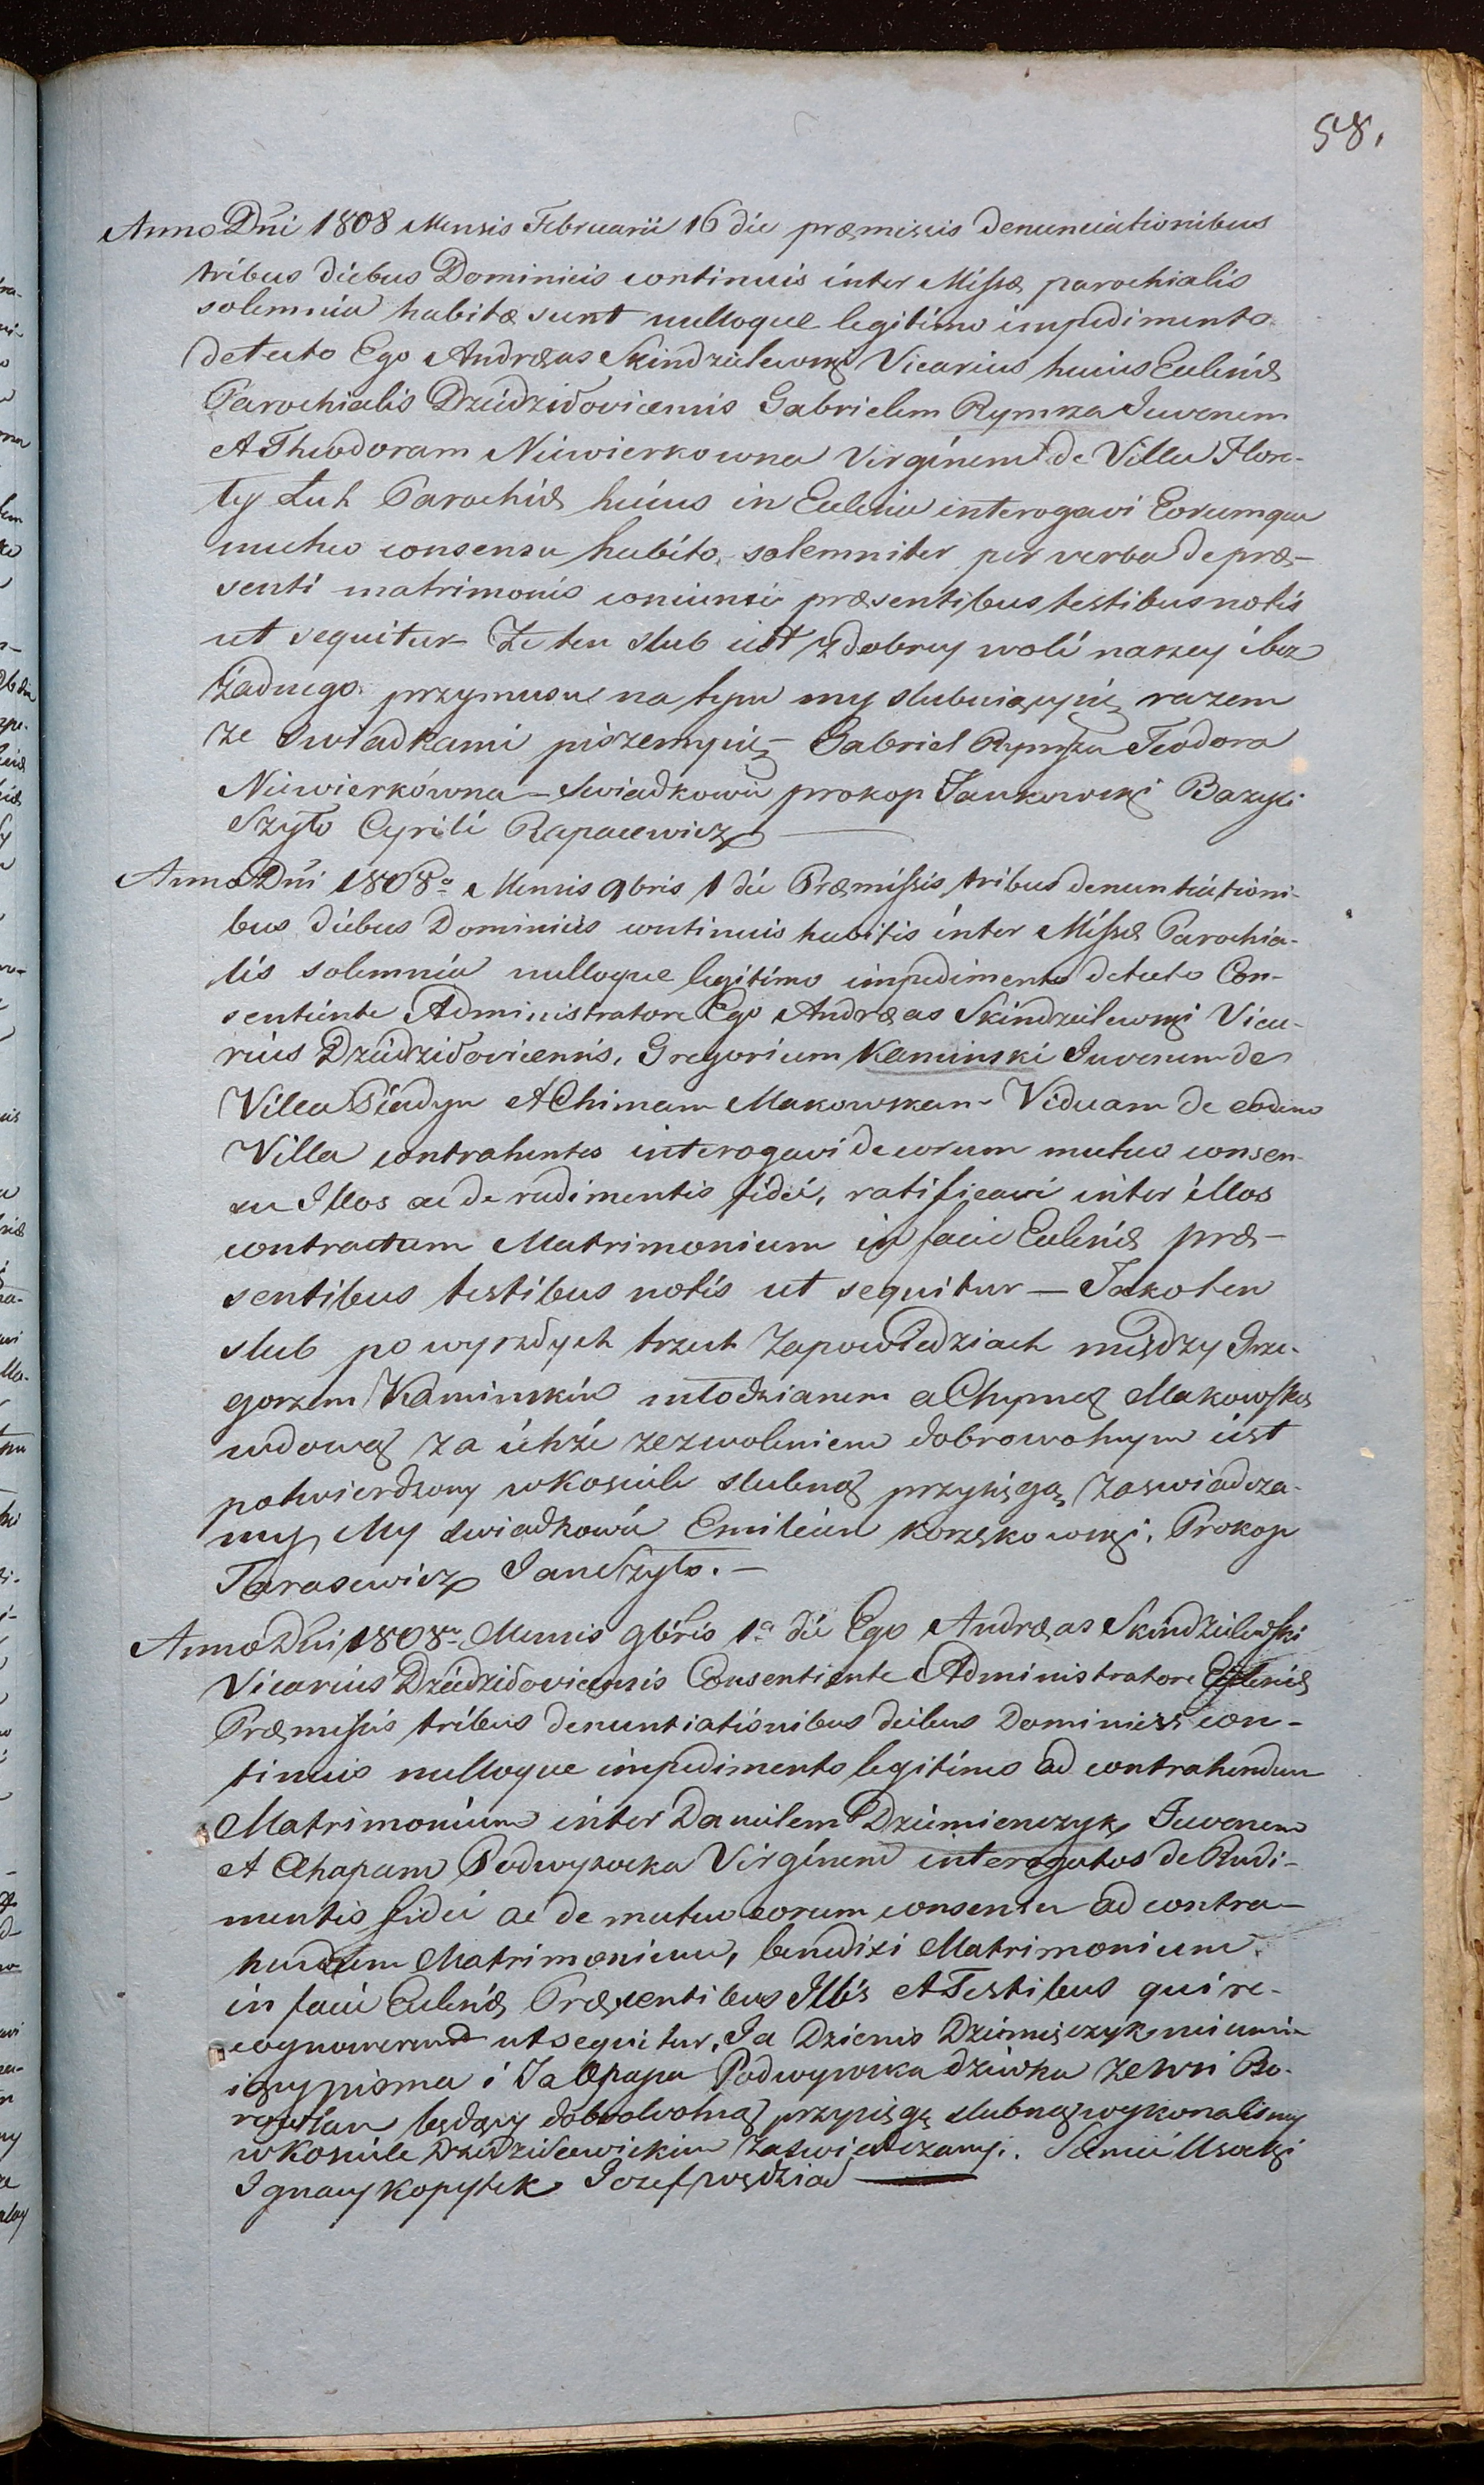 58.
Anno Dni 1808 Mensis Februarii 16 die præmissis denunciationibus
tribus diebus Dominicis continuis inter Missæ parochialis
solemnia habitæ sunt nulloque legitimo impedimento
detecto Ego Andræas Skindzielewski Vicarius huius Eccleniæ
Parochialis Dziedzidovicensis Gabrielem Rymsza Juvenem
et Theodoram Niewierkowna Virginem de Villa Hore-
ty Łuh Parochiæ huius in Ecclenia interogavi Eorumque
mutuo consensu habito, solemniter per verba de præ-
senti matrimonio coniunxi præsentibus testibus notis
ut sequitur Że ten slub iest z dobrey woli naszey i bez
żadnego przymusu na tym my slubuiącyię razem
ze swiadkami piszemyię Gabriel Rymsza Teodora
Niewierkówna – swiadkowie prokop Jankowski Bazyli
Szyło Cyrili Rapacewicz
Anno Dni 1808o Mensis 9bris 1 die Præmissis tribus denuntiationi-
bus diebus Dominicis continuis habitis inter Missæ Parochia-
lis solemnia nulloque legitimo impedimento detecto Con-
sentiente Administratore Ego Andræas Skindzielewski Vica-
rius Dziedzidovicensis, Gregorium Kaminski Juvenem de
Villa Siadyn et Chimam Makowskan Viduam de eodem
Villa contrahentes interogavi de eorum mutuo consen-
su Illos ac de rudimentis fidei, ratificavi inter illos
contractum Matrimonium in facie Eccleniæ præ-
sentibus testibus notis ut sequitur — Jako ten
slub po wyszłych trzech Zapowiedziach między Grze-
gorzem Kaminskim młodzianem a Chymą Makowską
wdową za ichże zezwoleniem dobrowolnym iest
potwierdzony w Kosciele slubną przysięgą zaswiadcza-
my My swiadkowie Emilian korzękowski, Prokop
Tarasewicz Jan Szyło. –
Anno Dni 1808o Mensis 9bris 1a die Ego Andræas Skindzielewski
Vicarius Dziedzidovicensis Consentiente Administratore Eccleniæ
Præmissis tribus denuntiationibus diebus Dominicis con-
tinuis nulloque impedimento legitimo ad contrahendum
Matrimonium inter Danielem Dziemienczyk Juvenem
et Ahapam Podwysocka Virginem interogatos de Rudi-
mentis fidei ac de mutuo eorum consensu ad contra-
hendum Matrimonium, benedixi Matrimonium
in facie Eccleniæ Præsentibus Illis et Testibus qui re-
cognowerunt ut sequitur, Ja Dzienis Dziemięczyk nieumie
iący pisma i Ja Ahapa Podwysocka dziewka ze wsi Bo-
rowlan będący dobrowolną przysięgę slubną wykonalismy
w Kosciele Dziedzilewickim zaswiadczamy. Samu Usocki
Ignacy Kopytek Jozef pwędziad